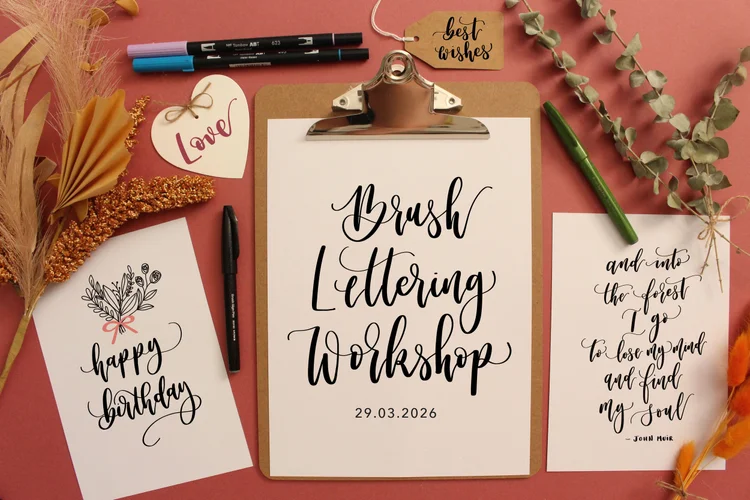 best
wishes
Love
Brush
Lettering
Workshop
29.03.2026
happy
birthday
and into
the forest
I go
to lose my mind
and find
my soul
- JOHN MUIR